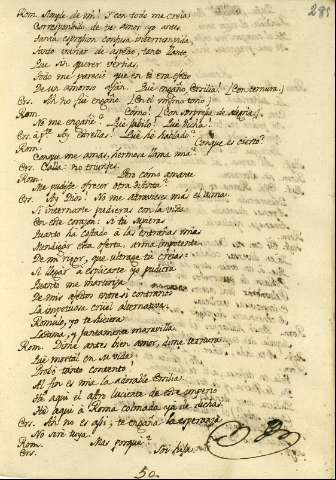 281
Rom. Simple de mi! Y con todo me creia
Correspondido de tu amor yo antes.
Tanta expresion confusa interrumpida,
Tanto variar de aspecto, tanto llanto,
Que sin querer vertias,
Todo me pareció que en ti era efecto
De un amoroso afan. Que engaño Ersilia! (Con ternura.)
Ers. Ah no fue engaño. (En el mismo tono)
Rom. Cómo! (Con sorpresa de alegria)
No me engañé? Que júbilo! Que dicha!
Ers. á pte. Ay Estrellas! Que he hablado?
Rom. Conque es cierto?
Conque me amas, hermosa llama mia?
Ers. Calla: no triunfes.
Rom. Pero cómo amante
Me pudiste ofrecer otra
Ers. Ay Dios! No me atravieses más el alma.
Si internarte pudieras con la vista
En este corazon: si tu supieras
Quanto ha costado á las entrañas mias
Mendigar esta oferta, arma impotente
De mi rigor, que ultrage tú creias:
Si llegar á espiarte yo pudiera
Quanto me martiriza
De mis afectos entre si contrarios
La impetuosa cruel alternativa.
Romulo, yo te hiciera
Lastima, y juntamente maravilla.
Rom. Dime antes bien amor, dime ternura.
Que mortal en su vida
Probó tanto contento!
Al fin es mia la adorable Ersilia!
He aqui el astro luciente de este imperio
He aqui á Roma colmada ya de dichas.
Ers. Ah! no es asi; te engaña la esperanza
No seré tuya.
Rom. Mas porqué?
Ers. Soy hija.
50.